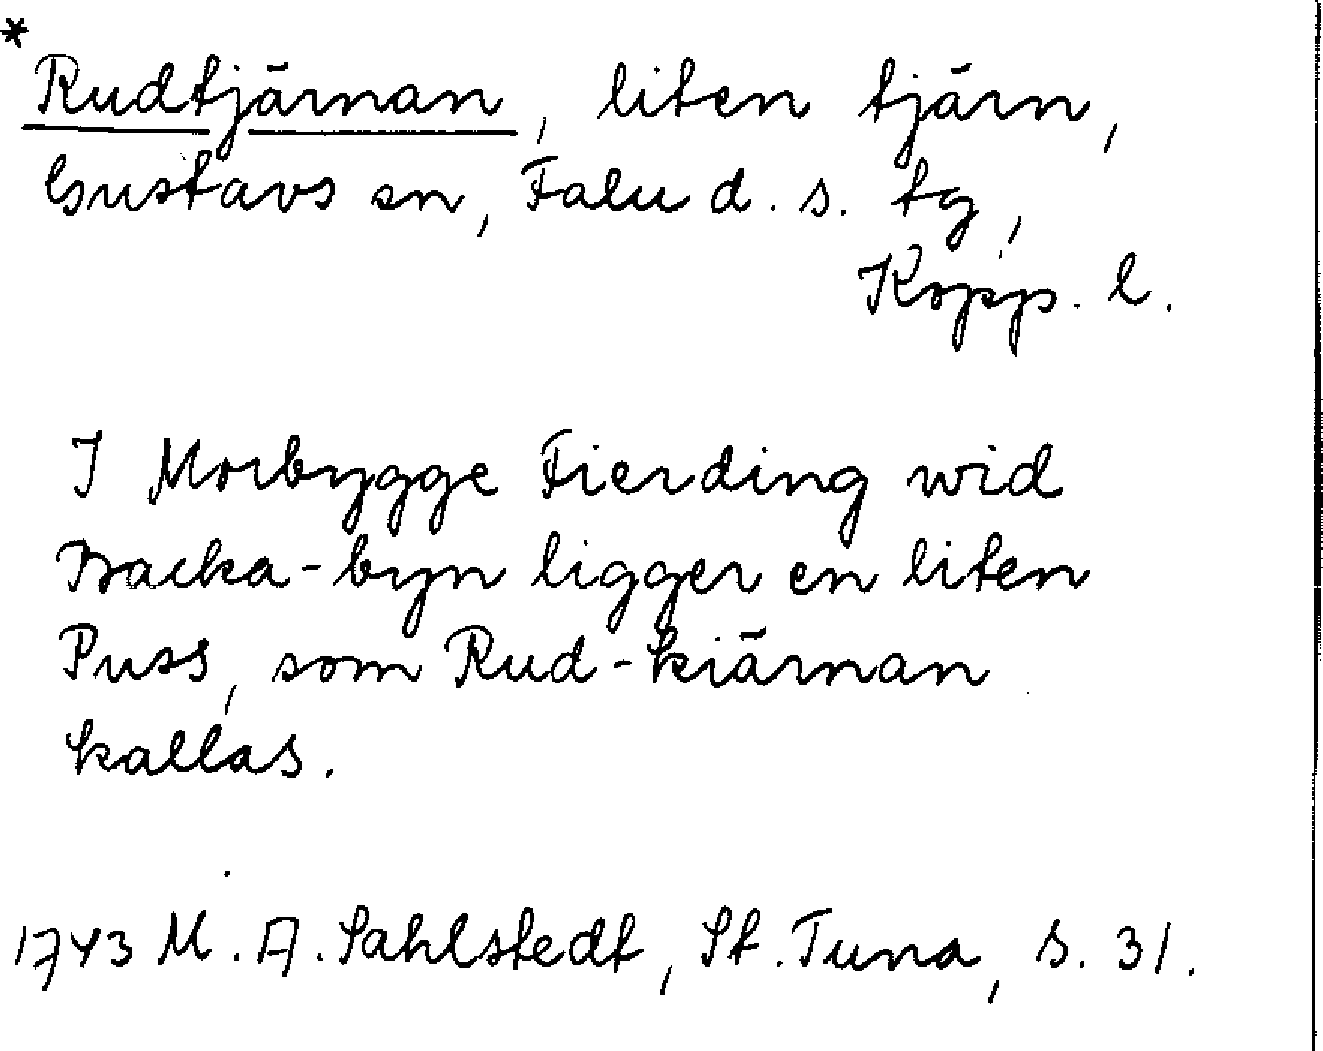 *
Rudtjärnan, liten tjärn,
Gustavs sn, Falu d. s. tg,
Kopp. l.
I Morbygge Fierding wid
Backa-byn ligger en liten
Puss, som Rud-kiärnan
kallas.
1743 M. A. Sahlstedt, St. Tuna, s. 31.